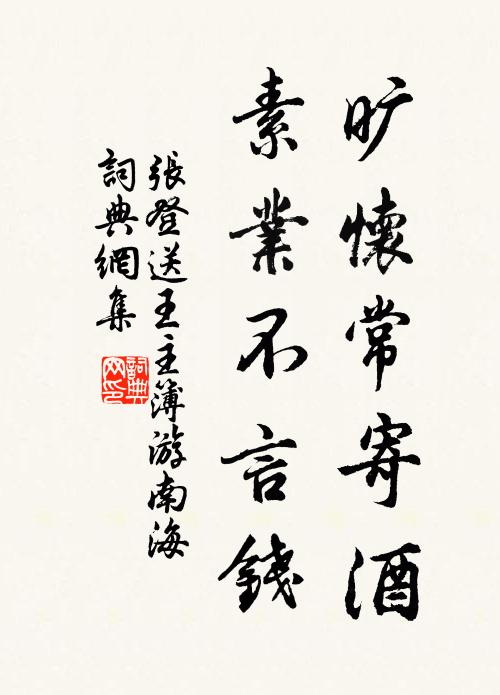 旷懷常寄酒
素業不言錢
張登送王主簿游南海
詞典網集
詞典
网印